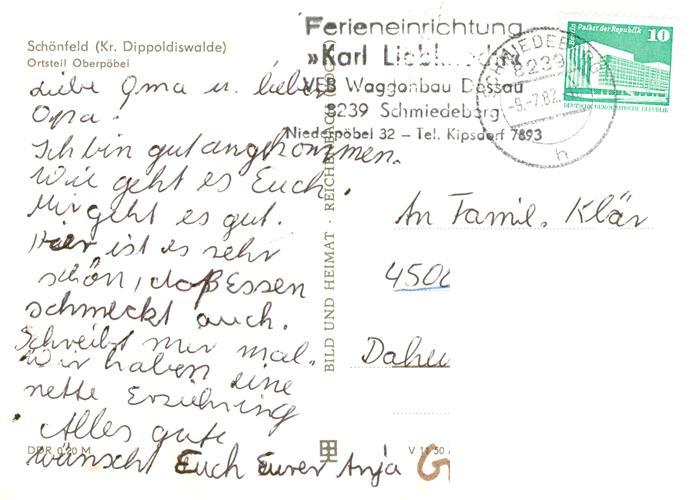 Schönfeld (Kr. Dippoldiswalde)
Ortsteil Oberpöbel
Liebe Oma u. lieber
Opa.
Ich bin gut angekommen.
Wie geht es Euch.
Mir geht es gut.
Hier ist es sehr
schön, daß Essen
schmeckt auch.
Schreibt mir mal.
Wir haben eine
nette Erziehring
Alles gute
wünscht Euch Eurer Anja
DDR 0,20 M
BILD UND HEIMAT · REICHENBACH
V 11 50
Ferieneinrichtung
»Karl Liebknecht«
VEB Waggonbau Dessau
8239 Schmiedeberg
Niederpöbel 32 – Tel. Kipsdorf 7893
SCHMIEDEBERG
8239
-9.-7.82
h
Palast der Republik 10
DEUTSCHE DEMOKRATISCHE REPUBLIK
An Famil. Klär
450